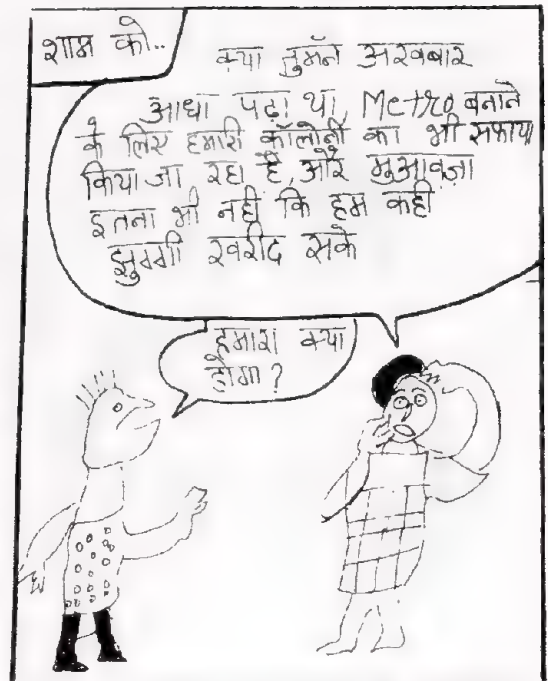 शाम को..
क्या तुमने अखबार
आधा पढ़ा था, Metro बनाने
के लिए हमारी कॉलोनी का भी सफाया
किया जा रहा है, और मुआवज़ा
इतना भी नही कि हम कही
झुग्गी खरीद सके
हमारा क्या
होगा?